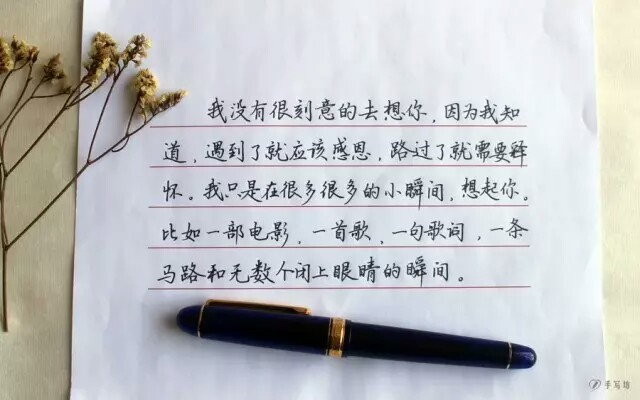 我没有很刻意的去想你，因为我知
道，遇到了就应该感恩，路过了就需要释
怀。我只是在很多很多的小瞬间，想起你。
比如一部电影，一首歌，一句歌词，一条
马路和无数个闭上眼睛的瞬间。
手写坊